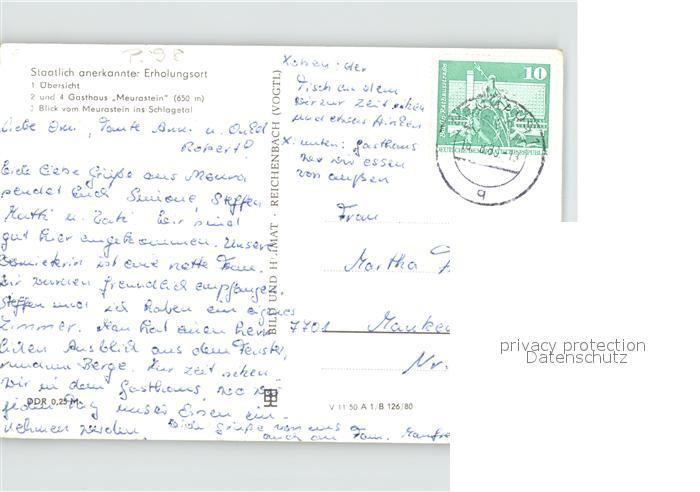 P. 98
Staatlich anerkannter Erholungsort
1 Übersicht
2 und 4 Gasthaus „Meurastein" (650 m)
3 Blick vom Meurastein ins Schlagetal
Liebe Omi, Tante Ann. u. Onkel
Robert!
Recht liebe Grüße aus Meura
sendet Euch Simone, Steffen
Mutti u. Vati. Wir sind
gut hier angekommen. Unsere
ist eine nette Frau.
Wir wurden freundlich empfangen.
Steffen und ich haben ein eignes
Zimmer. Man hat einen herr
lichen Ausblick aus dem Fenster,
rundum Berge. Zur Zeit
wir in dem Gasthaus, wo wir
jeden Tag unser Essen ein-
nehmen werden. Viele Grüße von uns
auch an Fam. Manfre
X oben: der
Tisch an dem
wir zur Zeit
und etwas
X unten: Gasthaus
wo wir essen
von außen
BILD UND HEIMAT · REICHENBACH (VOGTL)
10
Berlin, Rathausstraße
DEUTSCHE DEMOKRATISCHE REPUBLIK
q
Frau
Martha
7701
Nr.
DDR 0,25 M
V 11 50 A 1/B 126/80
privacy protection
Datenschutz